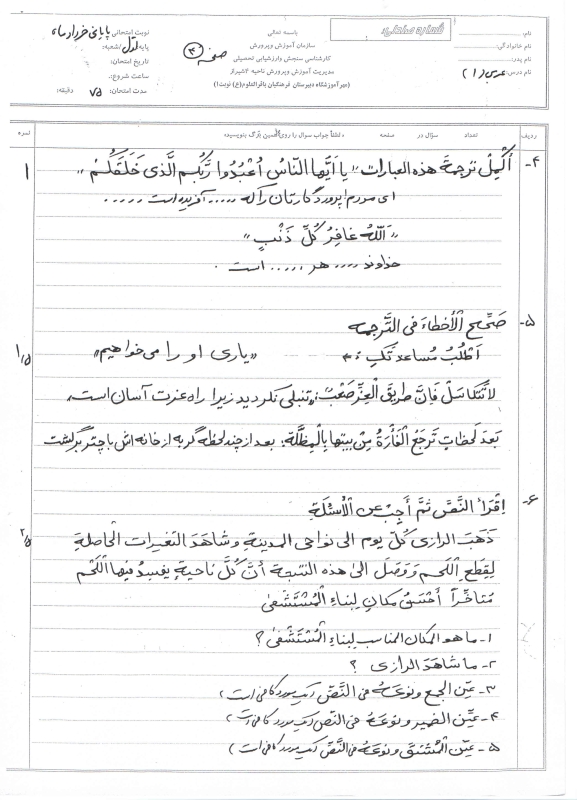 نام:
نام خانوادگی:
نام پدر:
نام درس: عربی (۱)
شماره صندلی:
صفحه ۳
باسمه تعالی
سازمان آموزش و پرورش
کارشناسی سنجش وارزشیابی تحصیلی
مدیریت آموزش و پرورش ناحیه ۴شیراز
(مهر آموزشگاه دبیرستان فرهنگیان باقرالعلوم(ع) نوبت۱)
نوبت امتحانی: پایانی خرداد ماه
پایه: اول /شعبه:
تاریخ امتحان:
ساعت شروع:
مدت امتحان: ۷۵ دقیقه:
ردیف تعداد سؤال در صفحه «لطفاً جواب سوال را روی همین برگ بنویسید» نمره
۴- أکمِل ترجمة هذه العبارات «یا أیّها النّاسُ اُعْبُدُوا رَبَّکُم الَّذی خَلَقَکُمْ» ۱
ای مردم! پروردگارتان را که ..... آفریده است .....
«اَللّهُ غافِرُ کُلِّ ذَنْبٍ»
خداوند .... هر ..... است .
۵- صَحِّحِ الْأخطاءَ فی التَّرجمه
أطْلُبُ مُساعدتَکِ : ← «یاری او را می‌خواهیم» ۱/۵
لاتَتَکاسَلْ فَإنَّ طریقَ الْعِزِّ صَعْبٌ: «تنبلی نکردید زیرا راه عزت آسان است»
بَعدَ لَحظاتٍ تَرجَعُ الْفَأرَةُ مِنْ بیتها بِالْمِظَلَّة: بعد از چند لحظه گربه از خانه اش با چتر برگشت
۶- اِقرَأ النَّصَّ ثمَّ أجِبْ عن الْأسئلة ۲/۵
ذَهَبَ الرازی کُلّ یوم الی نواحی المدینةِ وشاهَدَ التغیرات الحاصلة
لِقِطَعِ اللَّحمِ و وَصَلَ الی هذه النتیجة أنَّ کُلَّ ناحیةٍ یَفسُدُ فیها اللَّحْم
مُتأخّراً أحْسَنُ مکانٍ لِبناءِ الْمُسْتَشْفی
۱- ما هو المکان المناسب لِبناءِ الْمُسْتَشْفی ؟
۲- ما شاهَدَ الرازی ؟
۳- عیّن الجمع و نوعَهُ فی النَّصّ (یک مورد کافی است)
۴- عیّن الضمیر و نوعَهُ فی النّص (یک مورد کافی است)
۵- عیّن الْمُشتَقّ و نوعَهُ فی النَّصّ (یک مورد کافی است)